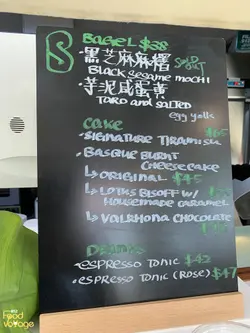 BAGEL $38
黑芝麻麻糬 SOLD OUT
BLACK SESAME MOCHI
芋泥咸蛋黄
TARO AND SALTED
egg yolk
CAKE
SIGNATURE TIRAMISU $65
BASQUE BURNT
CHEESECAKE
↳ ORIGINAL $45
↳ LOTUS BISOFF W/
HOUSEMADE CARAMEL
↳ VALRHONA CHOCOLATE
DRINKS
ESPRESSO TONIC $42
ESPRESSO TONIC (ROSE) $47
Food Voyage